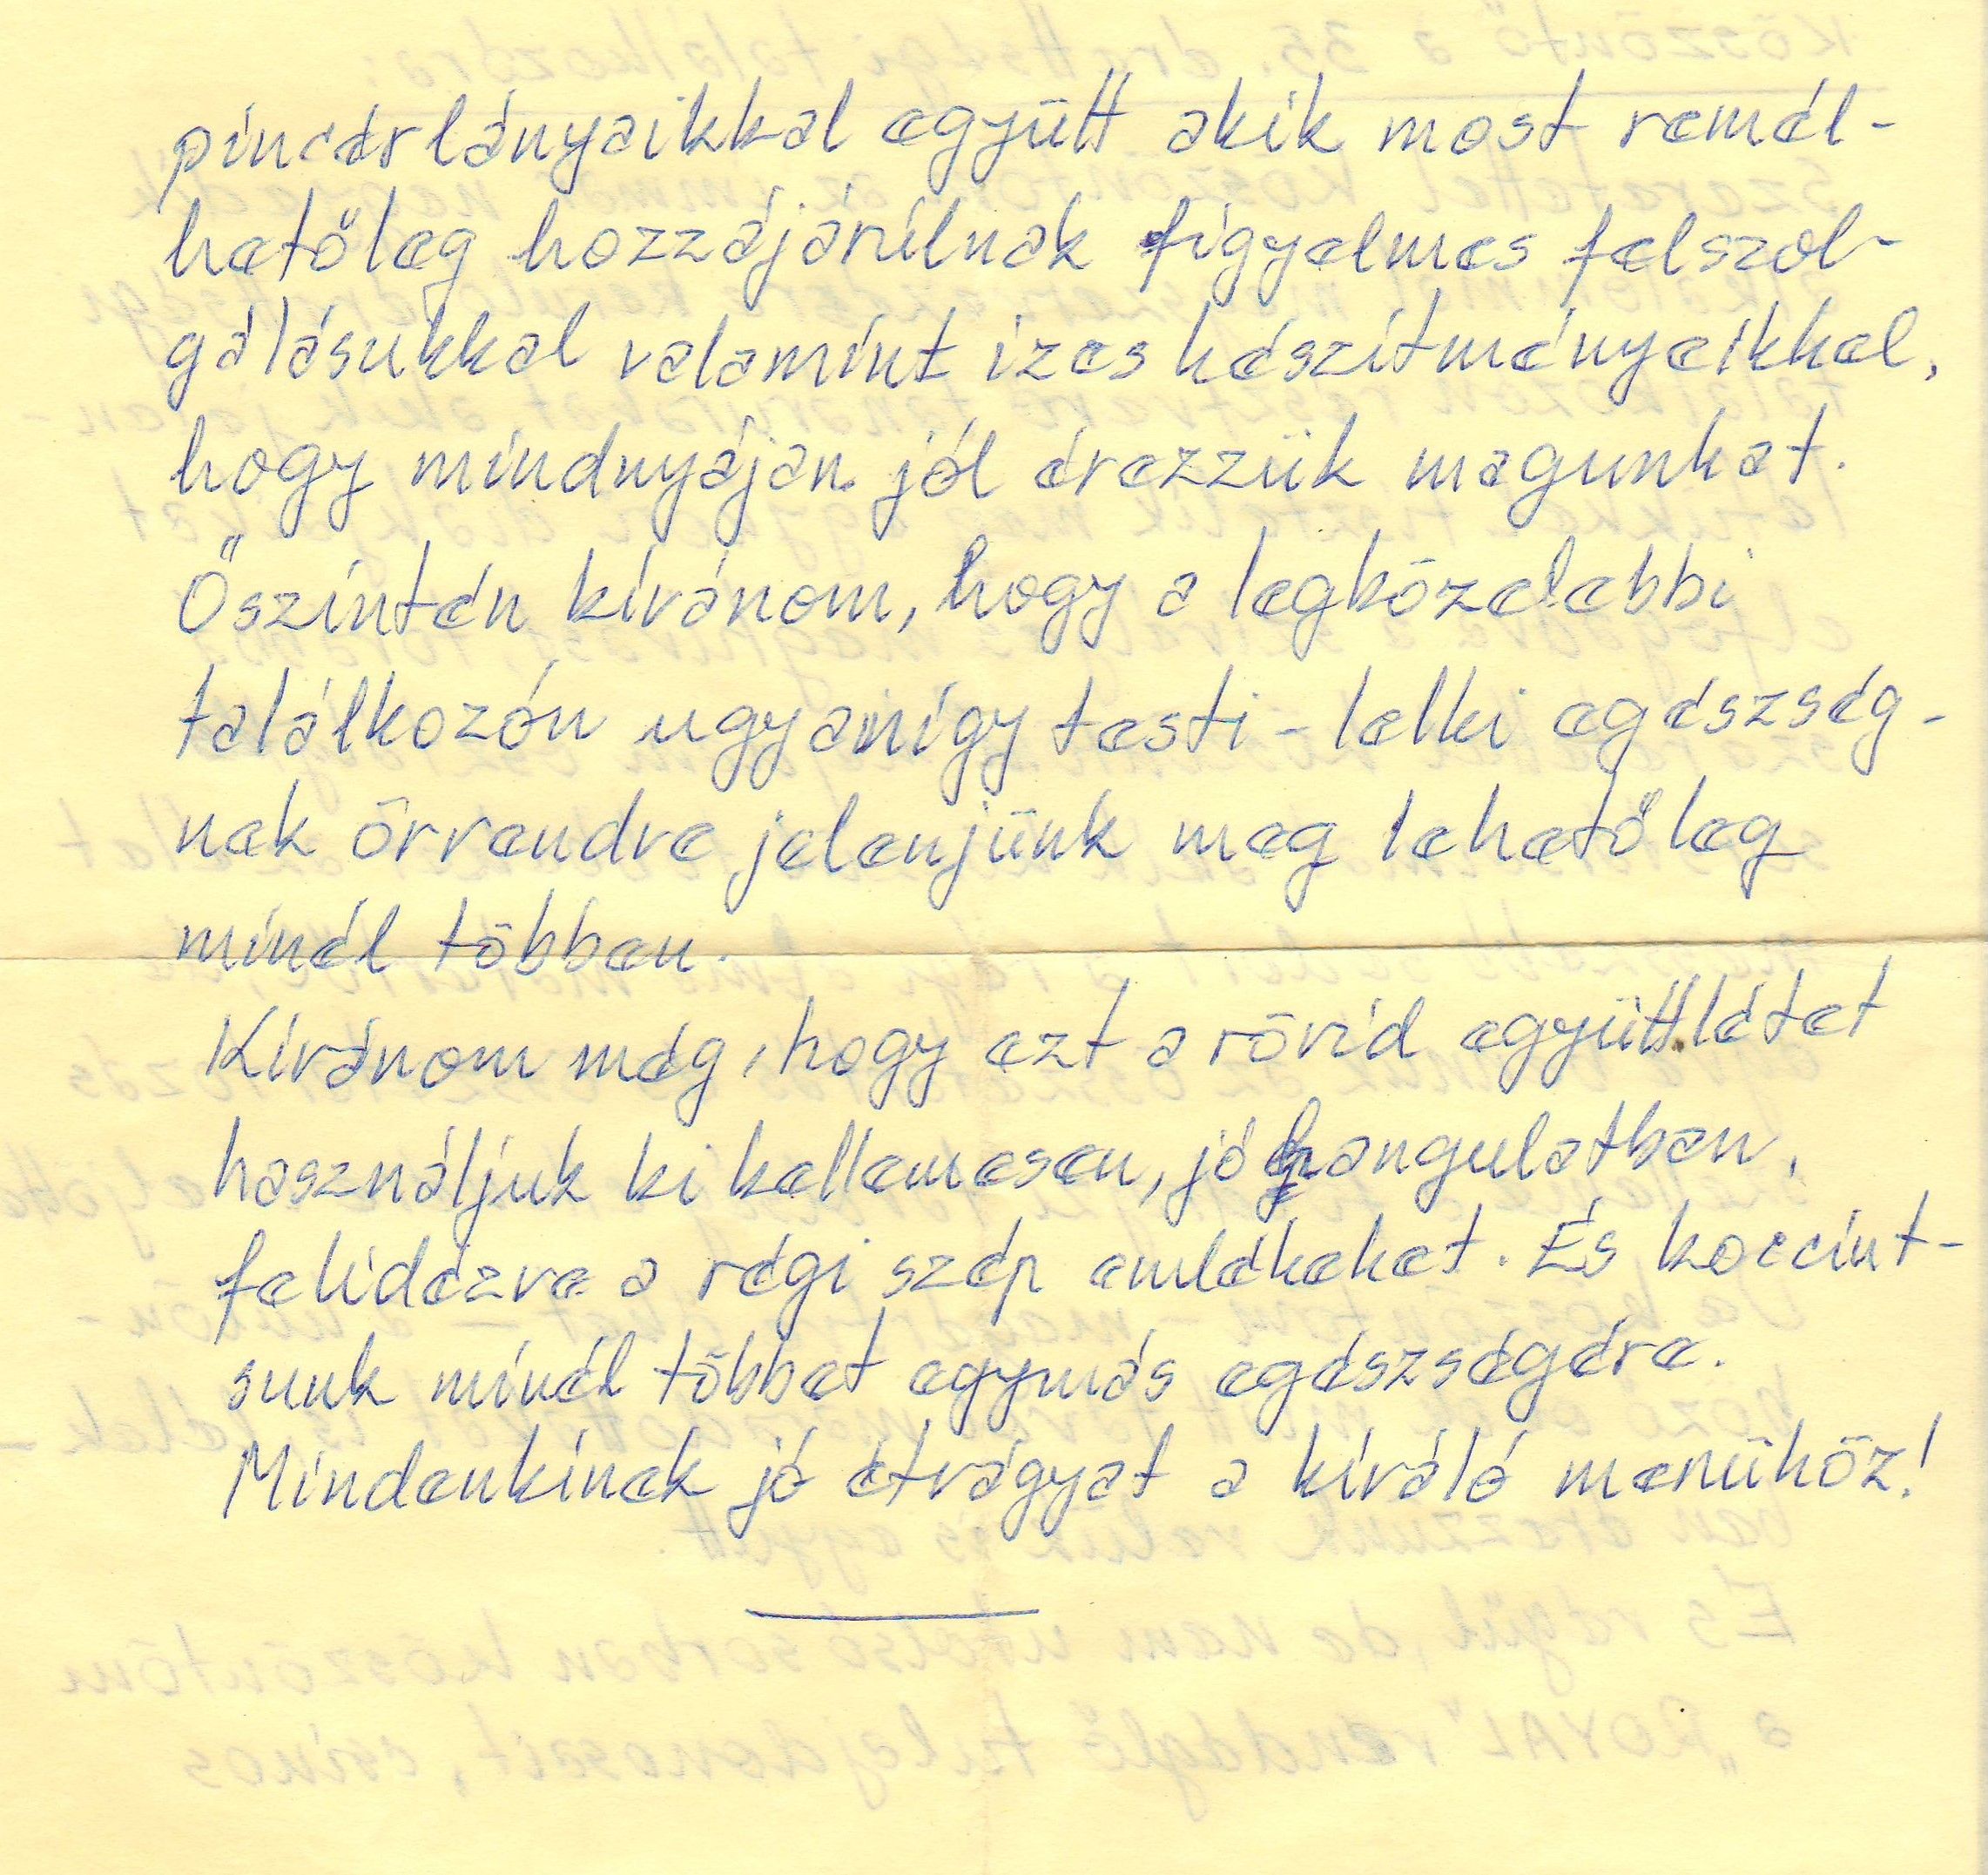 pincérlányaikkal együtt akik most remél-
hetőleg hozzájárúlnak figyelmes felszol-
gálásukkal valamint izes készítményeikkel,
hogy mindnyájan jól érezzük magunkat.
Őszintén kívánom, hogy a legközelebbi
találkozón ugyanígy testi-lelki egészség-
nek örvendve jelenjünk meg lehetőleg
minél többen.
Kívánom még, hogy ezt a rövid együttlétet
használjuk ki kellemesen, jó hangulatban,
felidézve a régi szép emlékeket. És koccint-
sunk minél többet egymás egészségére.
Mindenkinek jó étvágyat a kíváló menühöz!